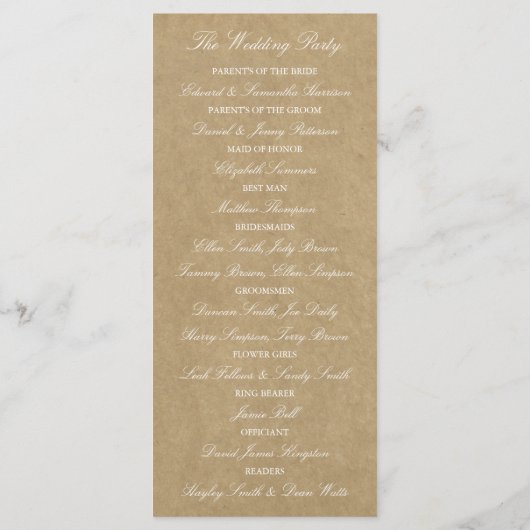 The Wedding Party
PARENT'S OF THE BRIDE
Edward & Samantha Harrison
PARENT'S OF THE GROOM
Daniel & Jenny Patterson
MAID OF HONOR
Elizabeth Summers
BEST MAN
Matthew Thompson
BRIDESMAIDS
Ellen Smith, Jody Brown
Tammy Brown, Ellen Simpson
GROOMSMEN
Duncan Smith, Joe Daily
Harry Simpson, Terry Brown
FLOWER GIRLS
Leah Fellows & Sandy Smith
RING BEARER
Jamie Bell
OFFICIANT
David James Kingston
READERS
Hayley Smith & Dean Watts